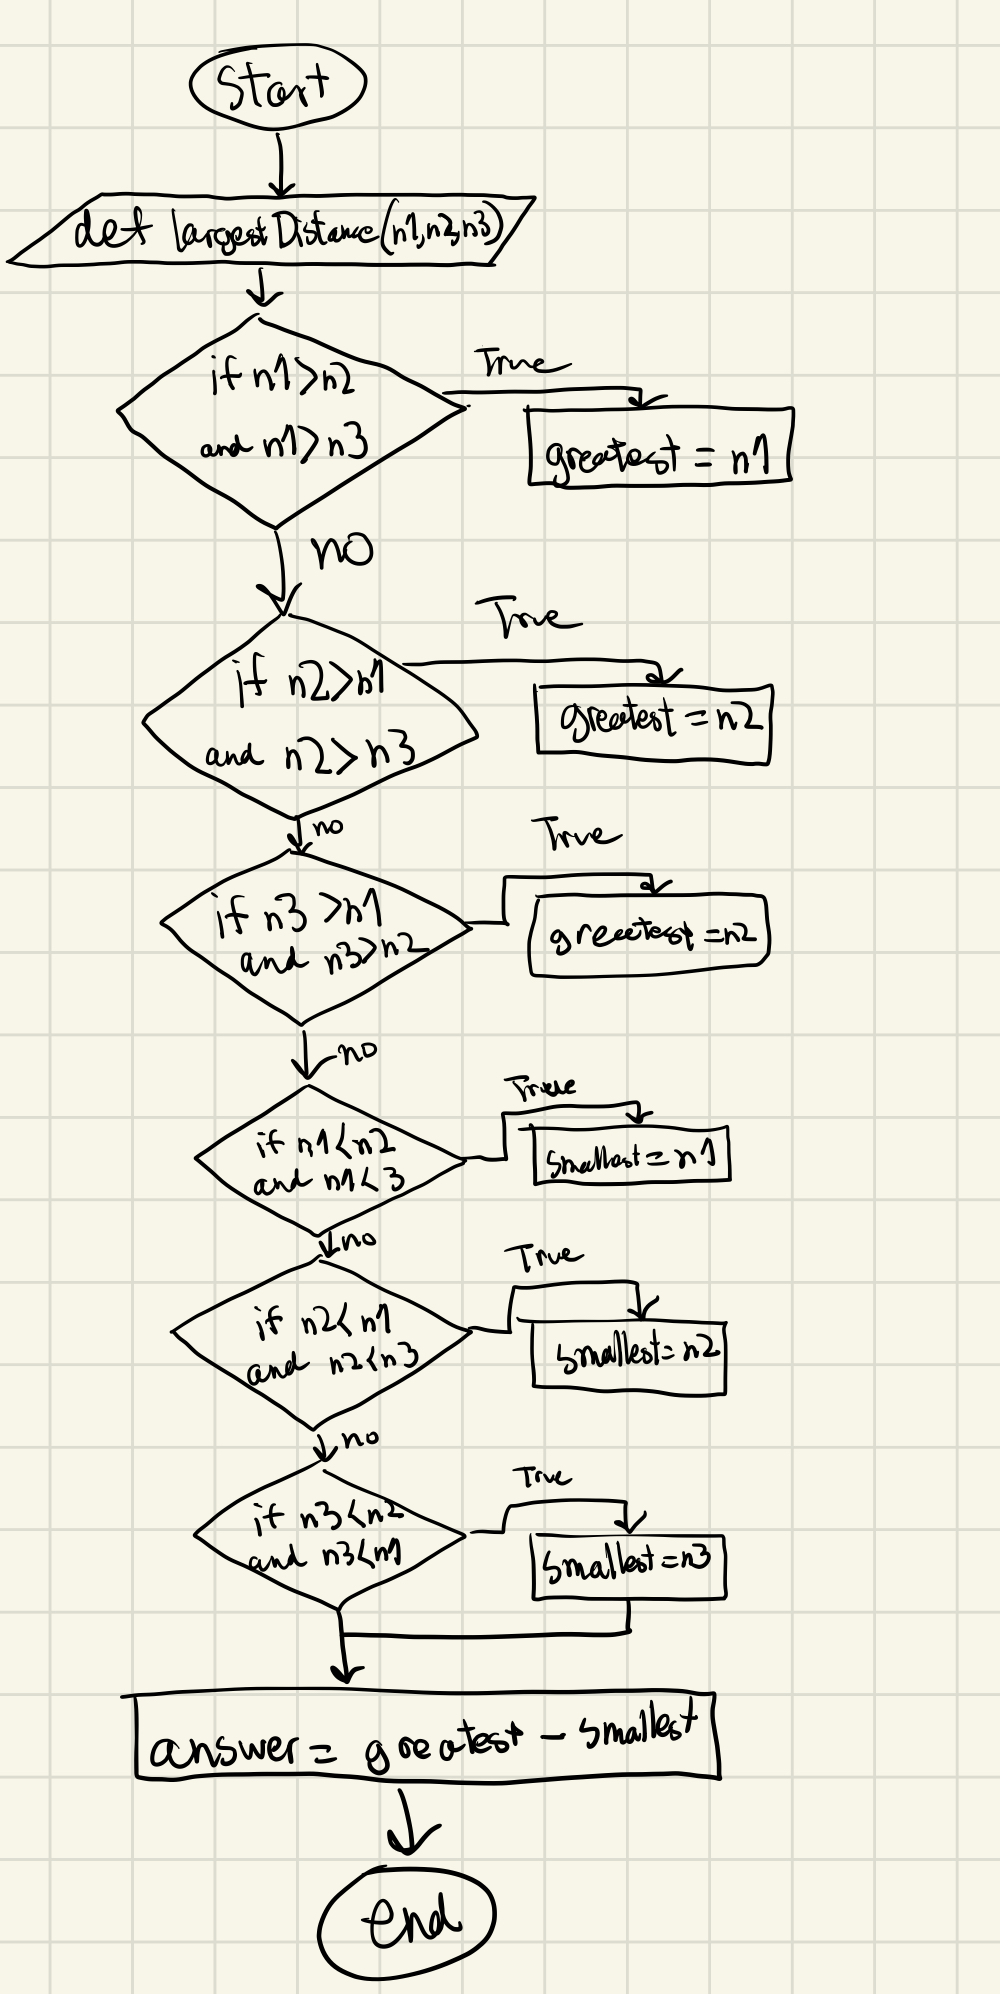 Start
def largestDistance(n1,n2,n3)
if n1>n2
and n1>n3
True
greatest = n1
no
if n2>n1
and n2>n3
True
greatest = n2
no
if n3 >n1
and n3>n2
True
greatest =n2
no
if n1<n2
and n1<3
True
smallest = n1
no
if n2<n1
and n2<n3
True
smallest=n2
no
if n3<n2
and n3<n1
True
smallest=n3
answer = greatest - smallest
end